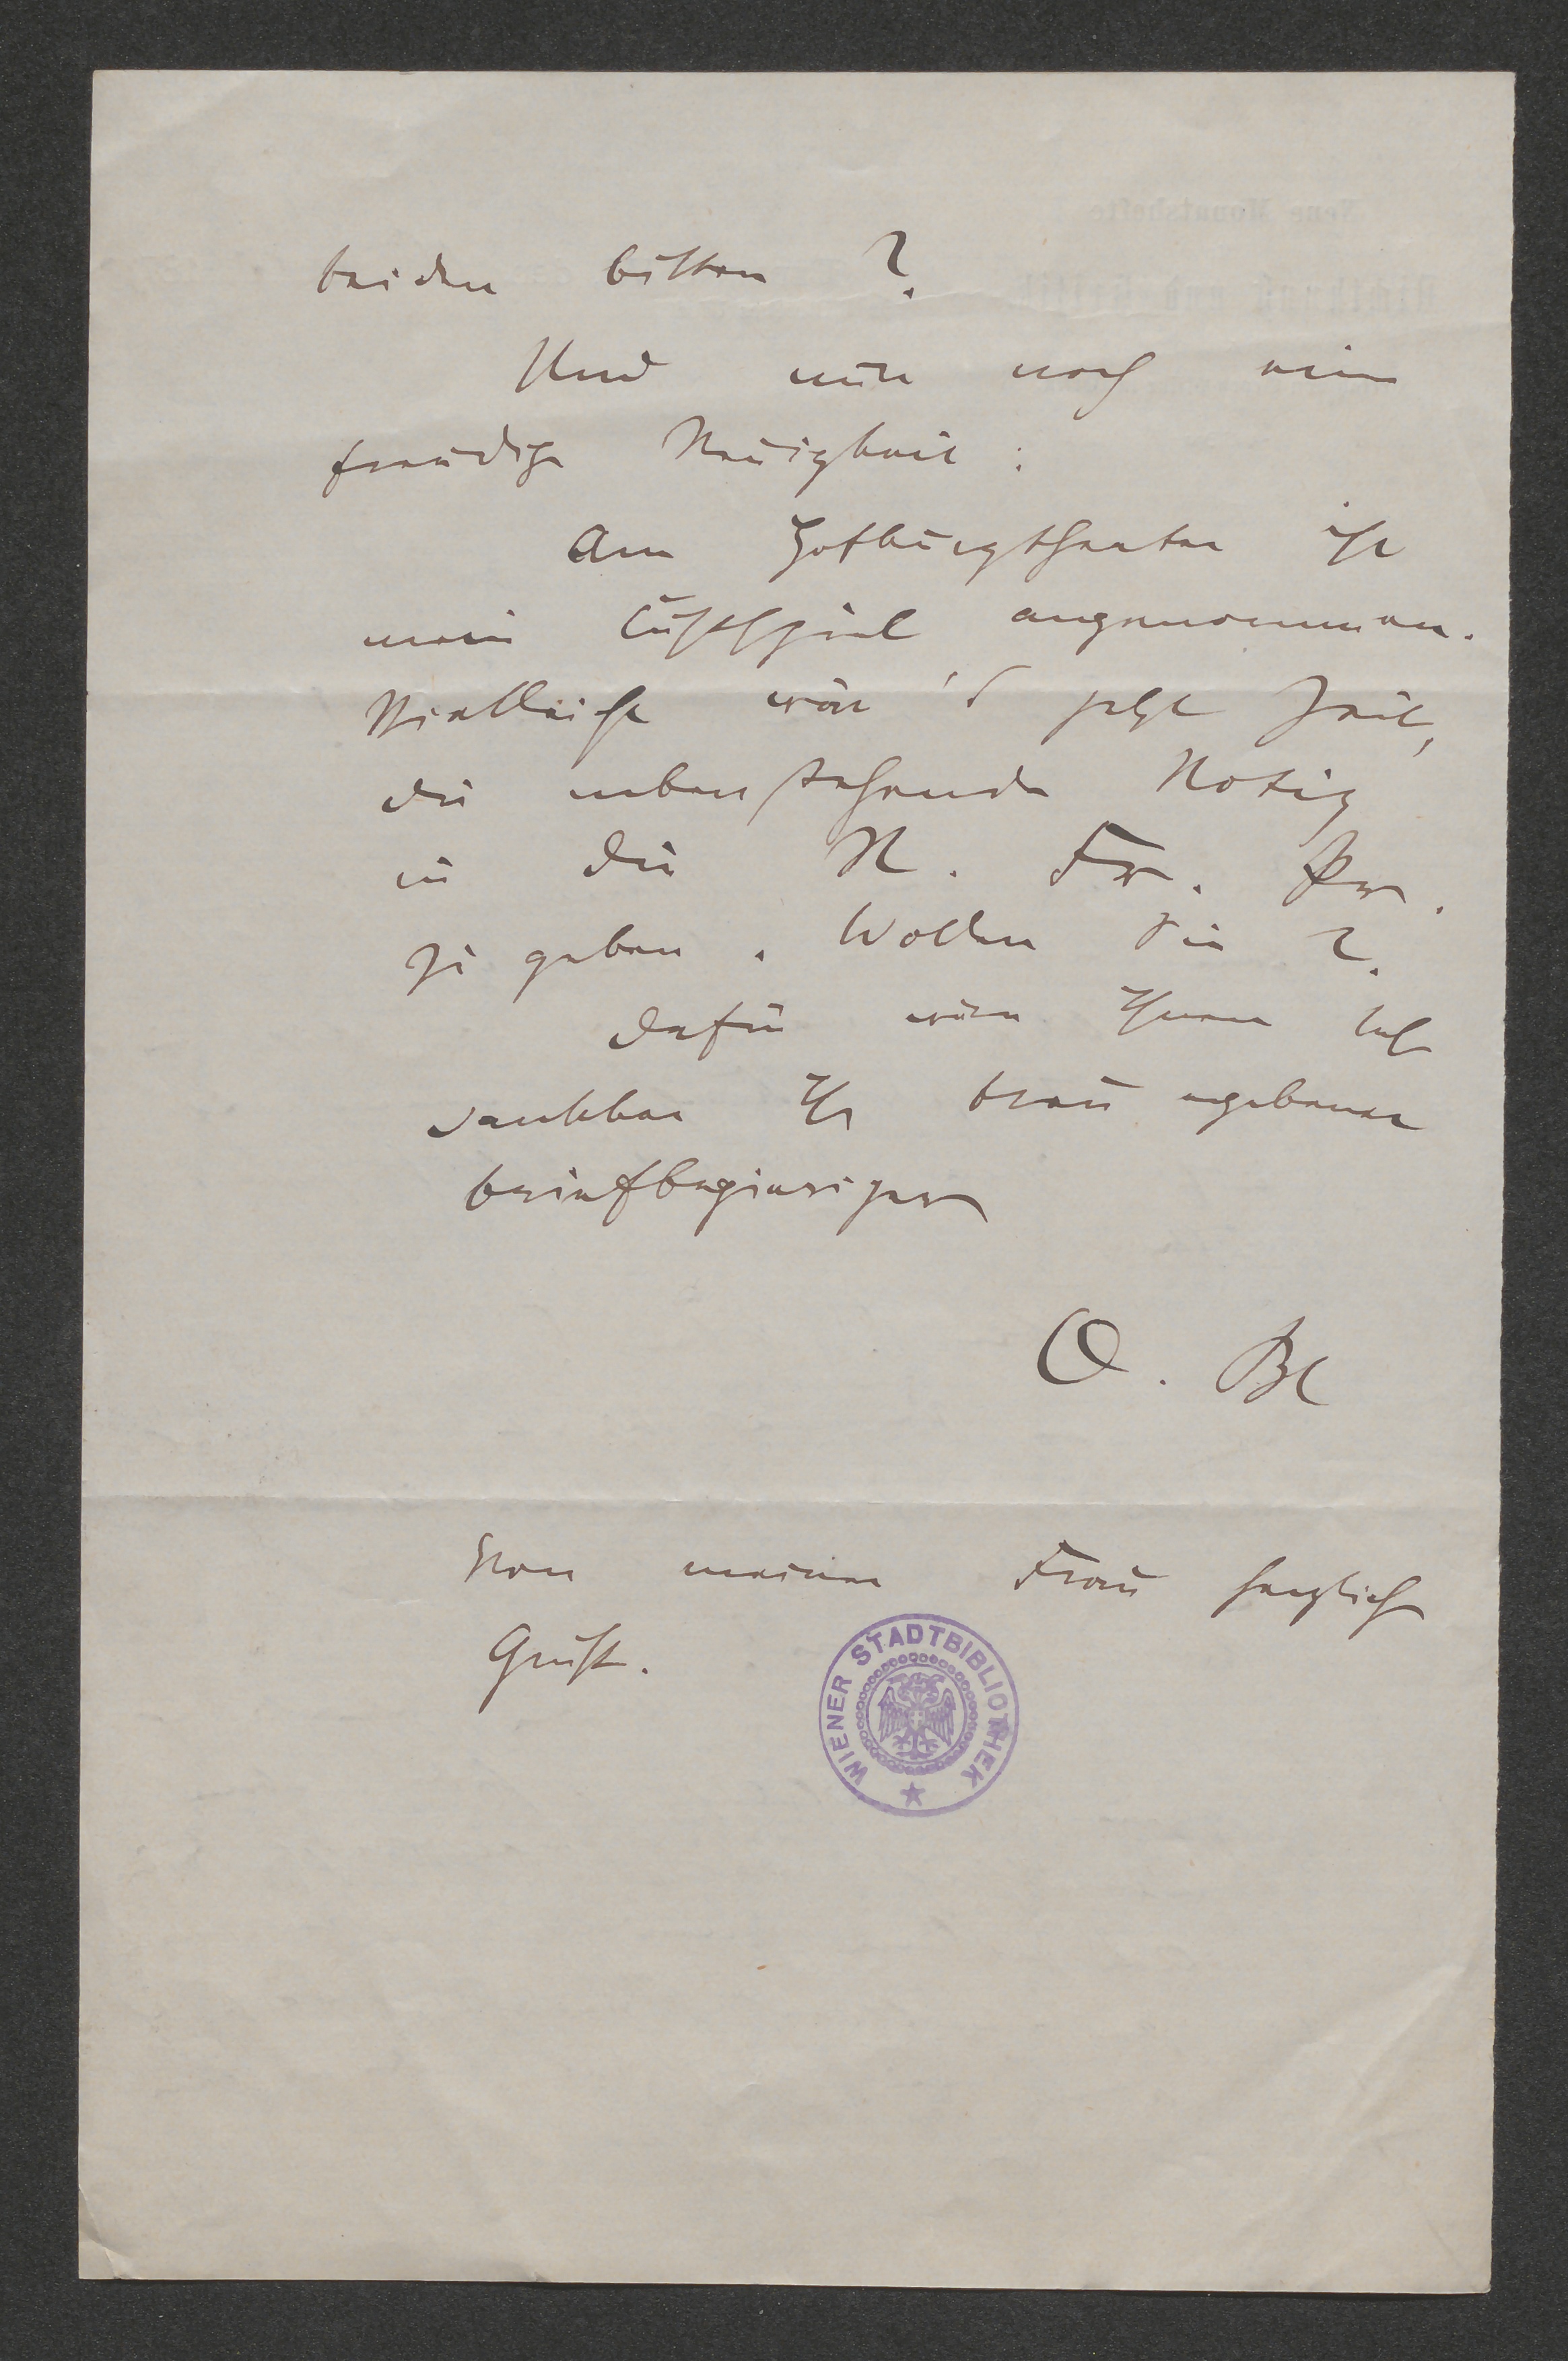 beiden bitten?
Und nun noch eine
freudige Neuigkeit:
Am Hofburgtheater ist
mein Lustspiel angenommen.
Vielleicht wär's jetzt Zeit,
die nebenstehende Notiz
in die N. Fr. Pr.
zu geben. Wollen Sie?
Dafür wäre Ihnen sehr
dankbar Ihr treu ergebener
briefbegieriger
O. Bl
Von meiner Frau herzliche
Grüße.
WIENER STADTBIBLIOTHEK